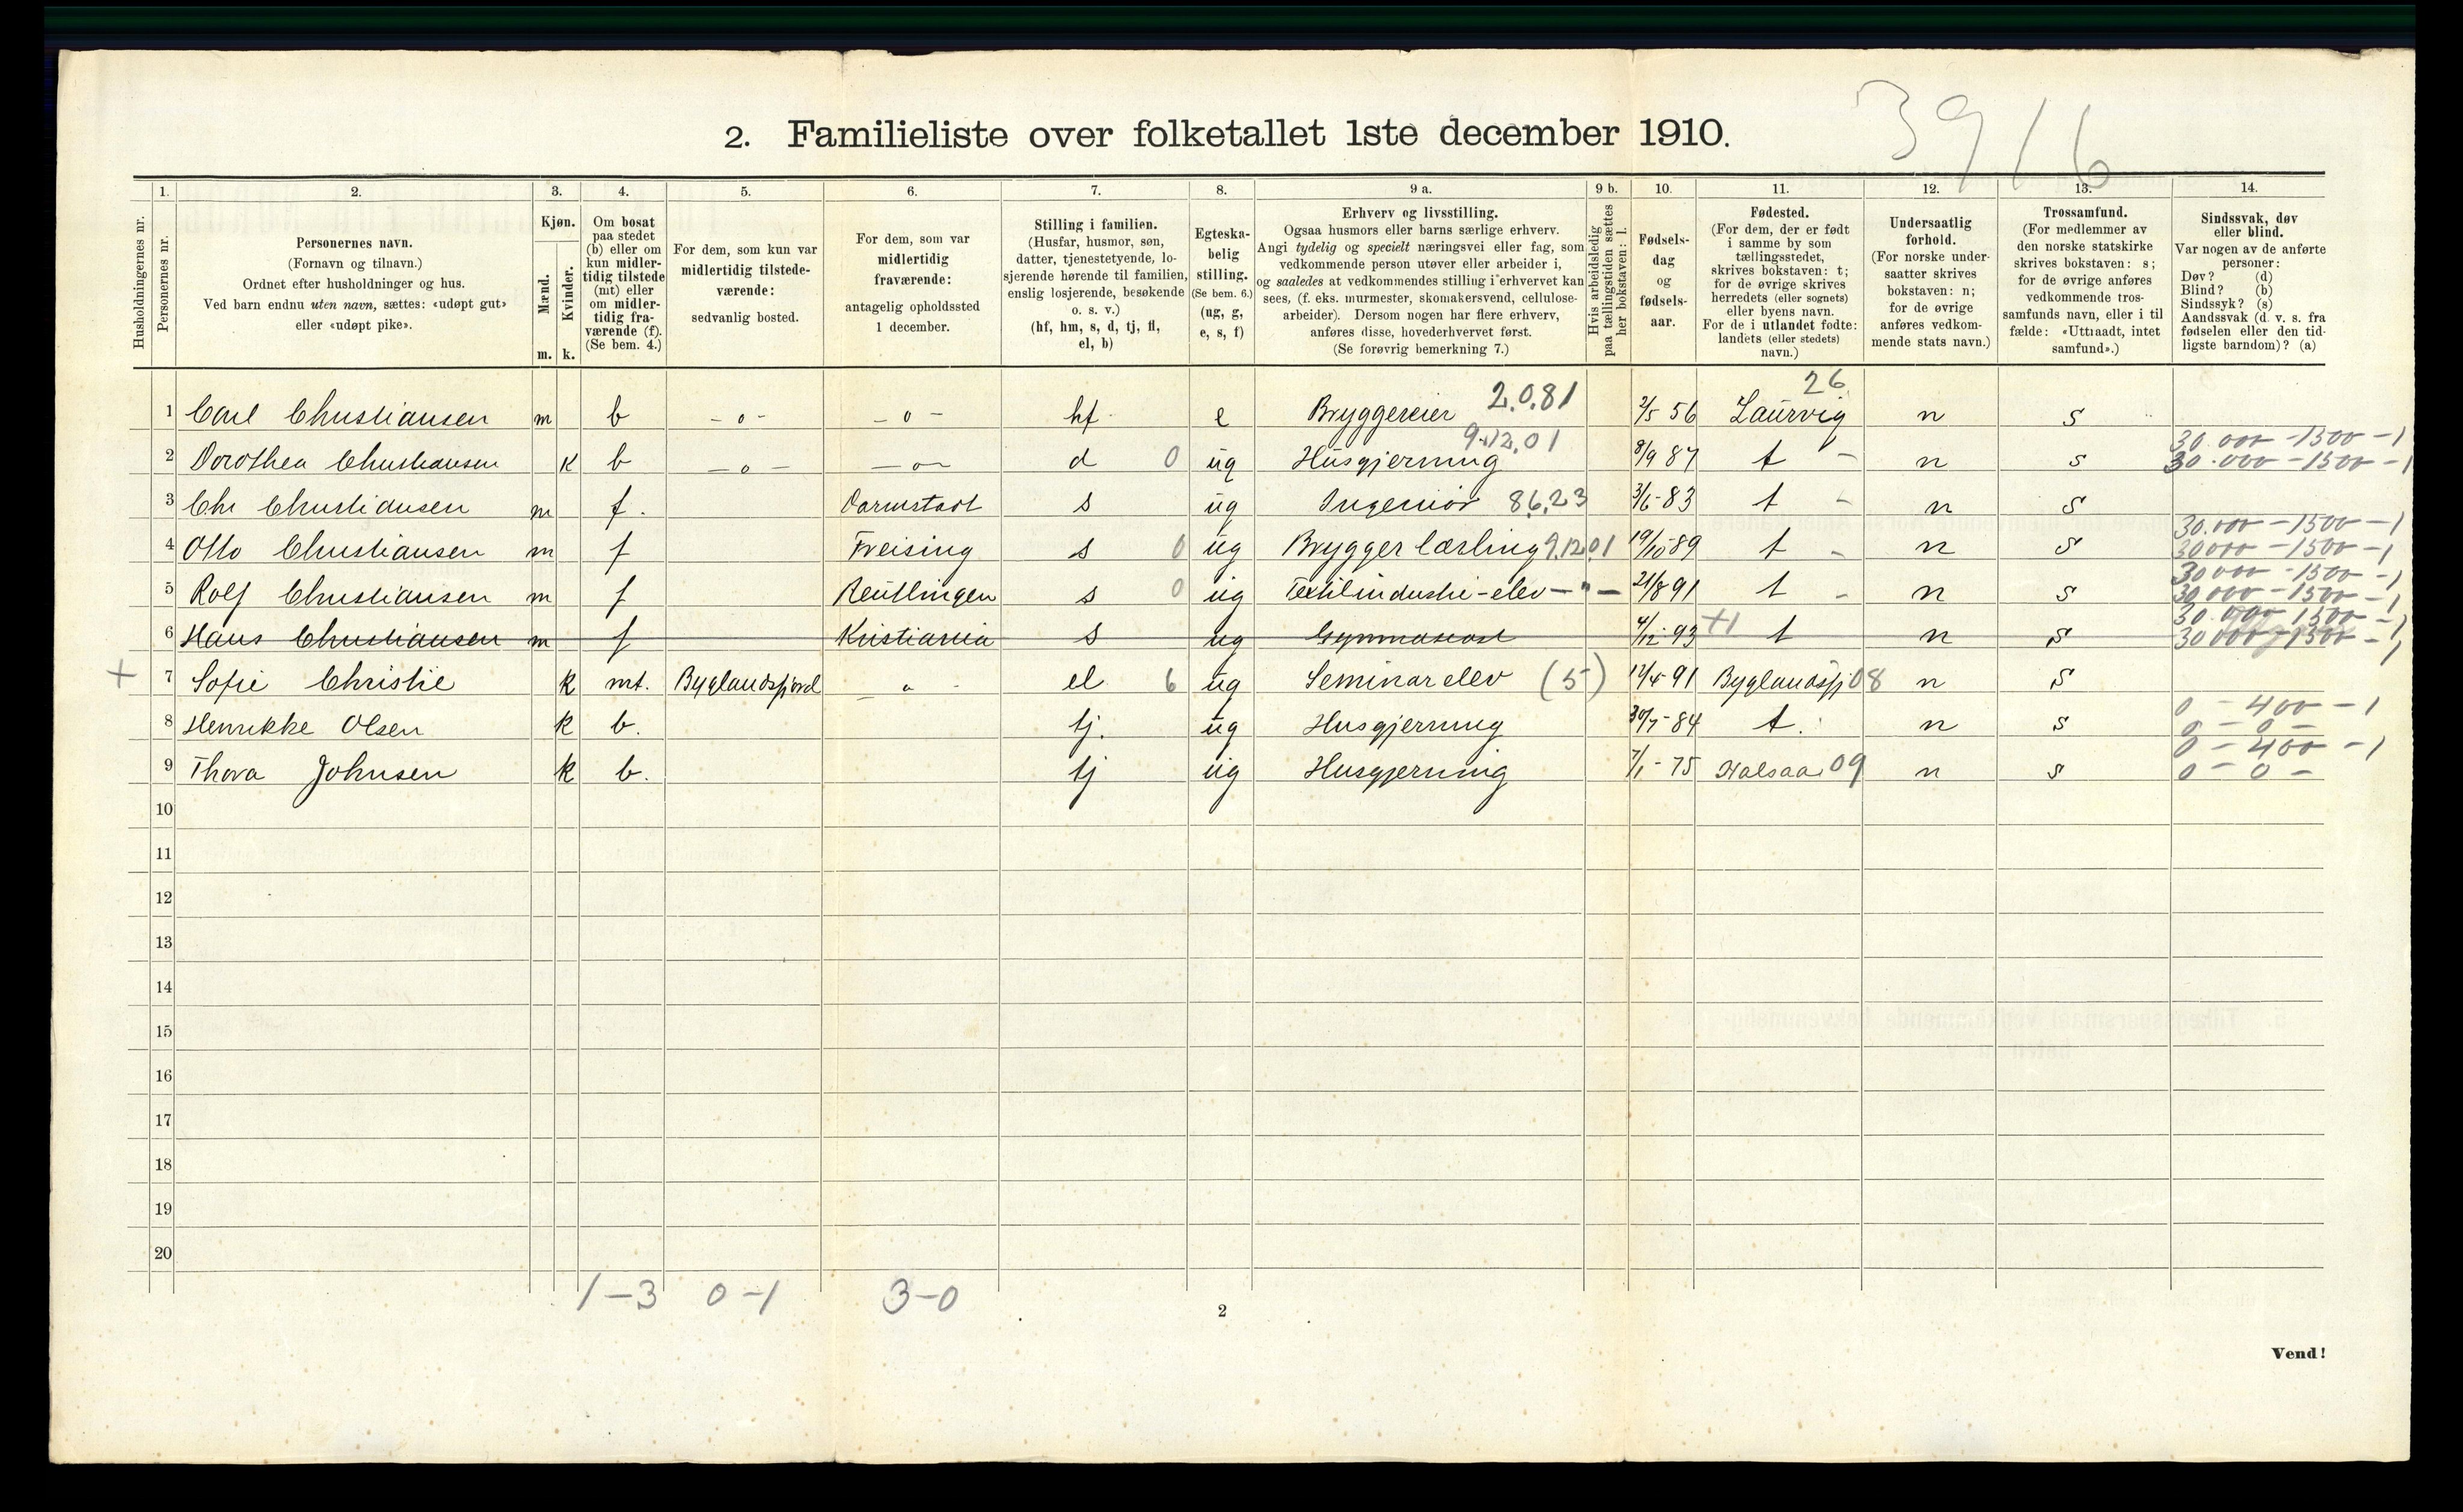 3916
2. Familieliste over folketallet 1ste december 1910.
Husholdningernes nr.
1.
Personernes nr.
2.
Personernes navn.
(Fornavn og tilnavn.)
Ordnet efter husholdninger og hus.
Ved barn endnu uten navn, sættes: «udøpt gut»
eller «udøpt pike».
3.
Kjøn.
Mænd.
Kvinder.
m. k.
4.
Om bosat
paa stedet
(b) eller om
kun midler-
tidig tilstede
(mt) eller
om midler-
tidig fra-
værende (f).
(Se bem. 4.)
5.
For dem, som kun var
midlertidig tilstede-
værende:
sedvanlig bosted.
6.
For dem, som var
midlertidig
fraværende:
antagelig opholdssted
1 december.
7.
Stilling i familien.
(Husfar, husmor, søn,
datter, tjenestetyende, lo-
sjerende hørende til familien,
enslig losjerende, besøkende
o. s. v.)
(hf, hm, s, d, tj, fl,
el, b)
8.
Egteska-
belig
stilling.
(Se bem. 6.)
(ug, g,
e, s, f)
9 a.
Erhverv og livsstilling.
Ogsaa husmors eller barns særlige erhverv.
Angi tydelig og specielt næringsvei eller fag, som
vedkommende person utøver eller arbeider i,
og saaledes at vedkommendes stilling i erhvervet kan
sees, (f. eks. murmester, skomakersvend, cellulose-
arbeider). Dersom nogen har flere erhverv,
anføres disse, hovederhvervet først.
(Se forøvrig bemerkning 7.)
9 b.
Hvis arbeidsledig
paa tællingstiden sættes
her bokstaven: l.
10.
Fødsels-
dag
og
fødsels-
aar.
11.
Fødested.
(For dem, der er født
i samme by som
tællingsstedet,
skrives bokstaven: t;
for de øvrige skrives
herredets (eller sognets)
eller byens navn.
For de i utlandet fødte:
landets (eller stedets)
navn.)
12.
Undersaatlig
forhold.
(For norske under-
saatter skrives
bokstaven: n;
for de øvrige
anføres vedkom-
mende stats navn.)
13.
Trossamfund.
(For medlemmer av
den norske statskirke
skrives bokstaven: s;
for de øvrige anføres
vedkommende tros-
samfunds navn, eller i til
fælde: «Uttraadt, intet
samfund».)
14.
Sindssvak, døv
eller blind.
Var nogen av de anførte
personer:
Døv? (d)
Blind? (b)
Sindssyk? (s)
Aandssvak (d. v. s. fra
fødselen eller den tid-
ligste barndom)? (a)
1 Carl Christiansen m b -o- -o- hf e Bryggereier 2.0.81 2/5 56 Laurvig 26 n s
2 Dorothea Christiansen k b -o- -o- d 0 ug Husgjerning 9.12.01 8/9 87 t - n s 30.000 - 1500 - 1
30.000 - 1500 - 1
3 Chr Christiansen m f. Darmstadt s ug Ingeniør 86.23 3/6-83 t - n s
4 Otto Christiansen m f Freising s 0 ug Brygger lærling 9.12.01 19/10 89 t - n s 30.000 - 1500 - 1
30000 - 1500 - 1
5 Rolf Christiansen m f Reutlingen s 0 ug Textilindustri-elev - " - 21/8 91 t - n s 30000 - 1500 - 1
30000 - 1500 - 1
6 Hans Christiansen m f Kristiania s ug Gymnasiast 4/12-93 t n s 30.000 1500 - 1
30000 - 1500 - 1
+ 7 Sofie Christie k mt. Byglandsfjord - o - el 6 ug Seminarelev (5) 12/4-91 Byglandsfj 08 n s
8 Henrikke Olsen k b. tj. ug Husgjerning 30/7-84 t. n s 0 - 400 - 1
0 - 0 -
9 Thora Johnsen k b. tj ug Husgjerning 7/1-75 Halsaa 09 n s 0 - 400 - 1
0 - 0 -
10
11
12
13
14
15
16
17
18
19
20
1-3 0-1 3-0
2
Vend!